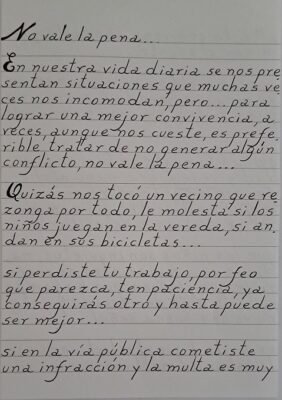 No vale la pena...
En nuestra vida diaria se nos pre
sentan situaciones que muchas ve
ces nos incomodan, pero... para
lograr una mejor convivencia, a
veces, aunque nos cueste, es prefe
rible tratar de no generar algún
conflicto, no vale la pena...
Quizás nos tocó un vecino que re
zonga por todo, le molesta si los
niños juegan en la vereda, si an
dan en sus bicicletas...
si perdiste tu trabajo, por feo
que parezca, ten paciencia, ya
conseguirás otro y hasta puede
ser mejor...
si en la vía pública cometiste
una infracción y la multa es muy